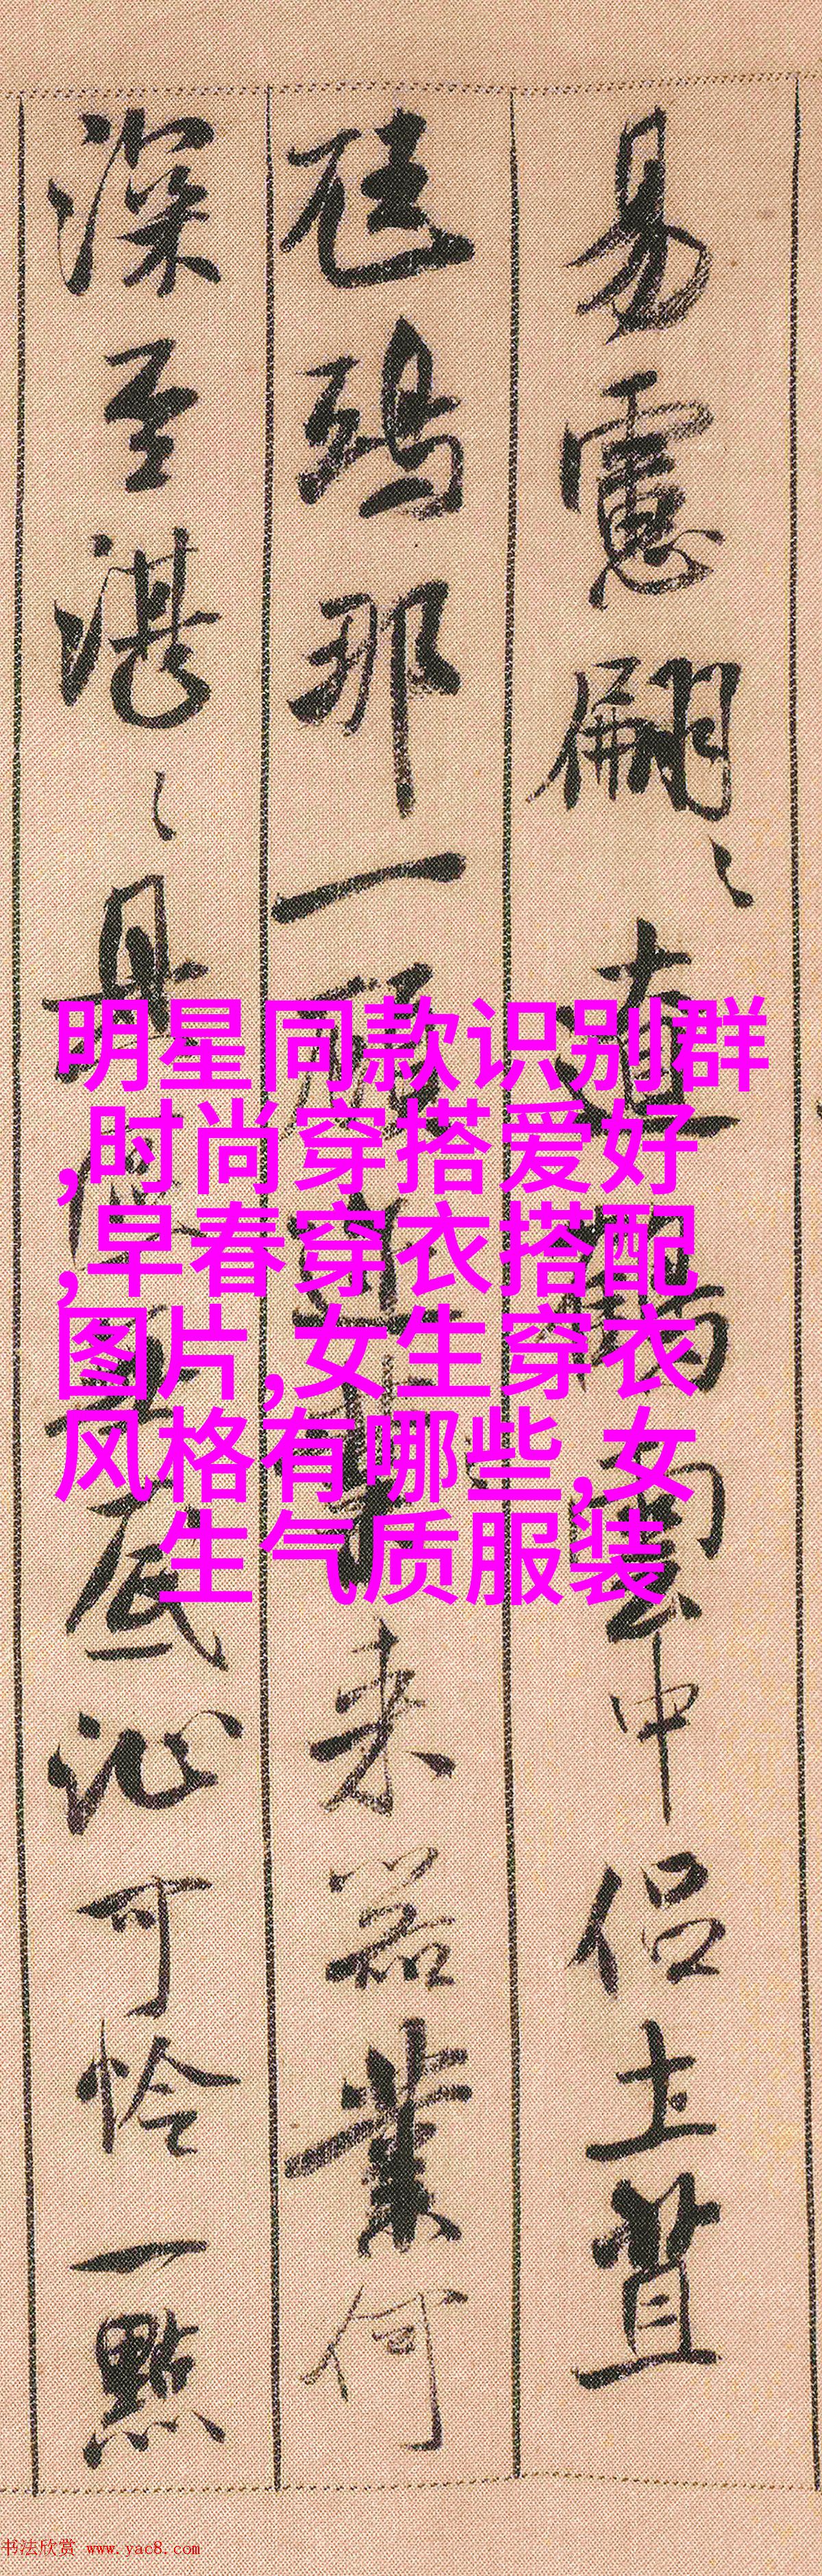 易慮翩〻雲中侣土苴
那一来業何
深至湛〻底沁可怜一點
明星同款识别群
,时尚穿搭爱好
,早春穿衣搭配
图片,女生穿衣
风格有哪些,女
生气质服装
书法欣赏 www.yac8.com